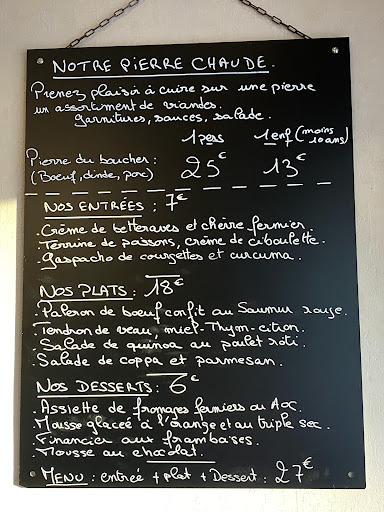 NOTRE PIERRE CHAUDE.
Prenez plaisir à cuire sur une pierre
un assortiment de viandes.
garnitures, sauces, salade.
1 pers 1 enf (moins 10 ans)
Pierre du boucher : 25€ 13€
(Boeuf, dinde, porc)
NOS ENTRÉES : 7€
. Crème de betteraves et chèvre fermier
. Terrine de poissons, crème de ciboulette.
. Gaspacho de courgettes et curcuma.
NOS PLATS : 18€
. Paleron de boeuf confit au Saumur rouge.
. Tendron de veau, miel-Thym-citron.
. Salade de quinoa au poulet roti.
. Salade de coppa et parmesan.
NOS DESSERTS : 6€
. Assiette de fromages fermiers ou AOC.
. Mousse glacée à l'orange et au triple sec.
. Financier aux framboises.
. Mousse au chocolat.
MENU : entrée + plat + Dessert : 27€